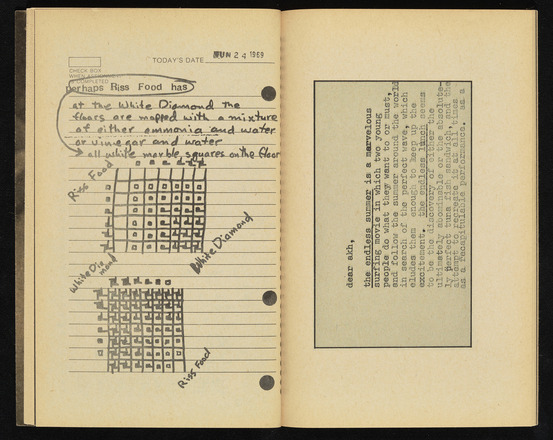 CHECK BOX
WHEN
IS COMPLETED
TODAY'S DATE
JUN 24 1969
perhaps Riss Food has
at the White Diamond the
floors are mopped with a mixture
of either ammonia and water
or vinegar and water
→ all white marble squares on the floor
Riss Food
White Diamond
White Diamond
Riss Food
dear akh,
the endless summer is a marvelous
surfing movie in which two young
people do what they want to or must,
and follow the summer around the world
in search of the perfect wave, which
eludes them enough to keep up the
excitement. the endless lunch seems
to be the discovery of either the
ultimately abominable or the absolute-
ly perfect tuna fish sandwich, and the
attempt to recreate it at all times
as a repeatable performance. as a